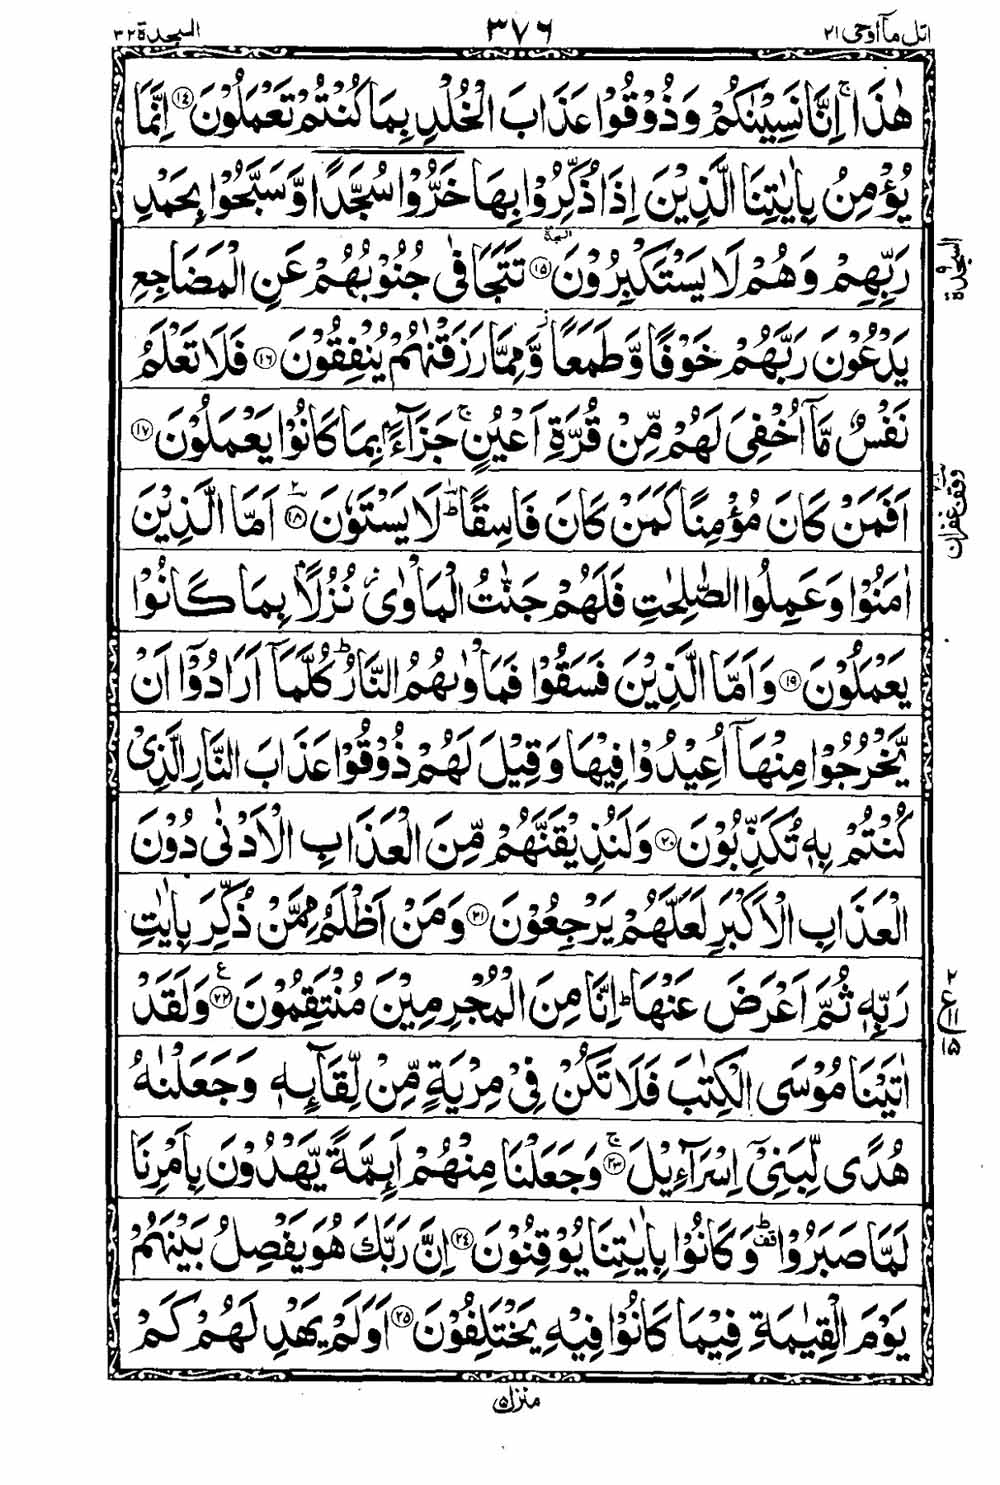 اتل مآ اوحی ٢١
٣٧٦
السجدة ٣٢
هٰذَا ۚ اِنَّا نَسِيْنٰكُمْ وَذُوْقُوْا عَذَابَ الْخُلْدِ بِمَا كُنْتُمْ تَعْمَلُوْنَ ﴿١٤﴾ اِنَّمَا
يُؤْمِنُ بِاٰيٰتِنَا الَّذِيْنَ اِذَا ذُكِّرُوْا بِهَا خَرُّوْا سُجَّدًا وَّسَبَّحُوْا بِحَمْدِ
رَبِّهِمْ وَهُمْ لَا يَسْتَكْبِرُوْنَ ﴿١٥﴾ السجدة تَتَجَافٰى جُنُوْبُهُمْ عَنِ الْمَضَاجِعِ
السجدة
يَدْعُوْنَ رَبَّهُمْ خَوْفًا وَّطَمَعًا ز وَّمِمَّا رَزَقْنٰهُمْ يُنْفِقُوْنَ ﴿١٦﴾ فَلَا تَعْلَمُ
نَفْسٌ مَّآ اُخْفِيَ لَهُمْ مِّنْ قُرَّةِ اَعْيُنٍ ۚ جَزَآءًۢ بِمَا كَانُوْا يَعْمَلُوْنَ ﴿١٧﴾
اَفَمَنْ كَانَ مُؤْمِنًا كَمَنْ كَانَ فَاسِقًا ؕ لَا يَسْتَوٗنَ ﴿١٨﴾ اَمَّا الَّذِيْنَ
وقف غفران
اٰمَنُوْا وَعَمِلُوا الصّٰلِحٰتِ فَلَهُمْ جَنّٰتُ الْمَاْوٰى ز نُزُلًاۢ بِمَا كَانُوْا
يَعْمَلُوْنَ ﴿١٩﴾ وَاَمَّا الَّذِيْنَ فَسَقُوْا فَمَاْوٰىهُمُ النَّارُ ؕ كُلَّمَآ اَرَادُوْٓا اَنْ
يَّخْرُجُوْا مِنْهَآ اُعِيْدُوْا فِيْهَا وَقِيْلَ لَهُمْ ذُوْقُوْا عَذَابَ النَّارِ الَّذِيْ
كُنْتُمْ بِهٖ تُكَذِّبُوْنَ ﴿٢٠﴾ وَلَنُذِيْقَنَّهُمْ مِّنَ الْعَذَابِ الْاَدْنٰى دُوْنَ
الْعَذَابِ الْاَكْبَرِ لَعَلَّهُمْ يَرْجِعُوْنَ ﴿٢١﴾ وَمَنْ اَظْلَمُ مِمَّنْ ذُكِّرَ بِاٰيٰتِ
رَبِّهٖ ثُمَّ اَعْرَضَ عَنْهَا ؕ اِنَّا مِنَ الْمُجْرِمِيْنَ مُنْتَقِمُوْنَ ﴿٢٢﴾ ع وَلَقَدْ
٢
ع
١١
١٥
اٰتَيْنَا مُوْسَى الْكِتٰبَ فَلَا تَكُنْ فِيْ مِرْيَةٍ مِّنْ لِّقَآئِهٖ وَجَعَلْنٰهُ
هُدًى لِّبَنِيْٓ اِسْرَآءِيْلَ ﴿٢٣﴾ ۚ وَجَعَلْنَا مِنْهُمْ اَئِمَّةً يَّهْدُوْنَ بِاَمْرِنَا
لَمَّا صَبَرُوْا ؕ قف وَكَانُوْا بِاٰيٰتِنَا يُوْقِنُوْنَ ﴿٢٤﴾ اِنَّ رَبَّكَ هُوَ يَفْصِلُ بَيْنَهُمْ
يَوْمَ الْقِيٰمَةِ فِيْمَا كَانُوْا فِيْهِ يَخْتَلِفُوْنَ ﴿٢٥﴾ اَوَلَمْ يَهْدِ لَهُمْ كَمْ
منزل ٥